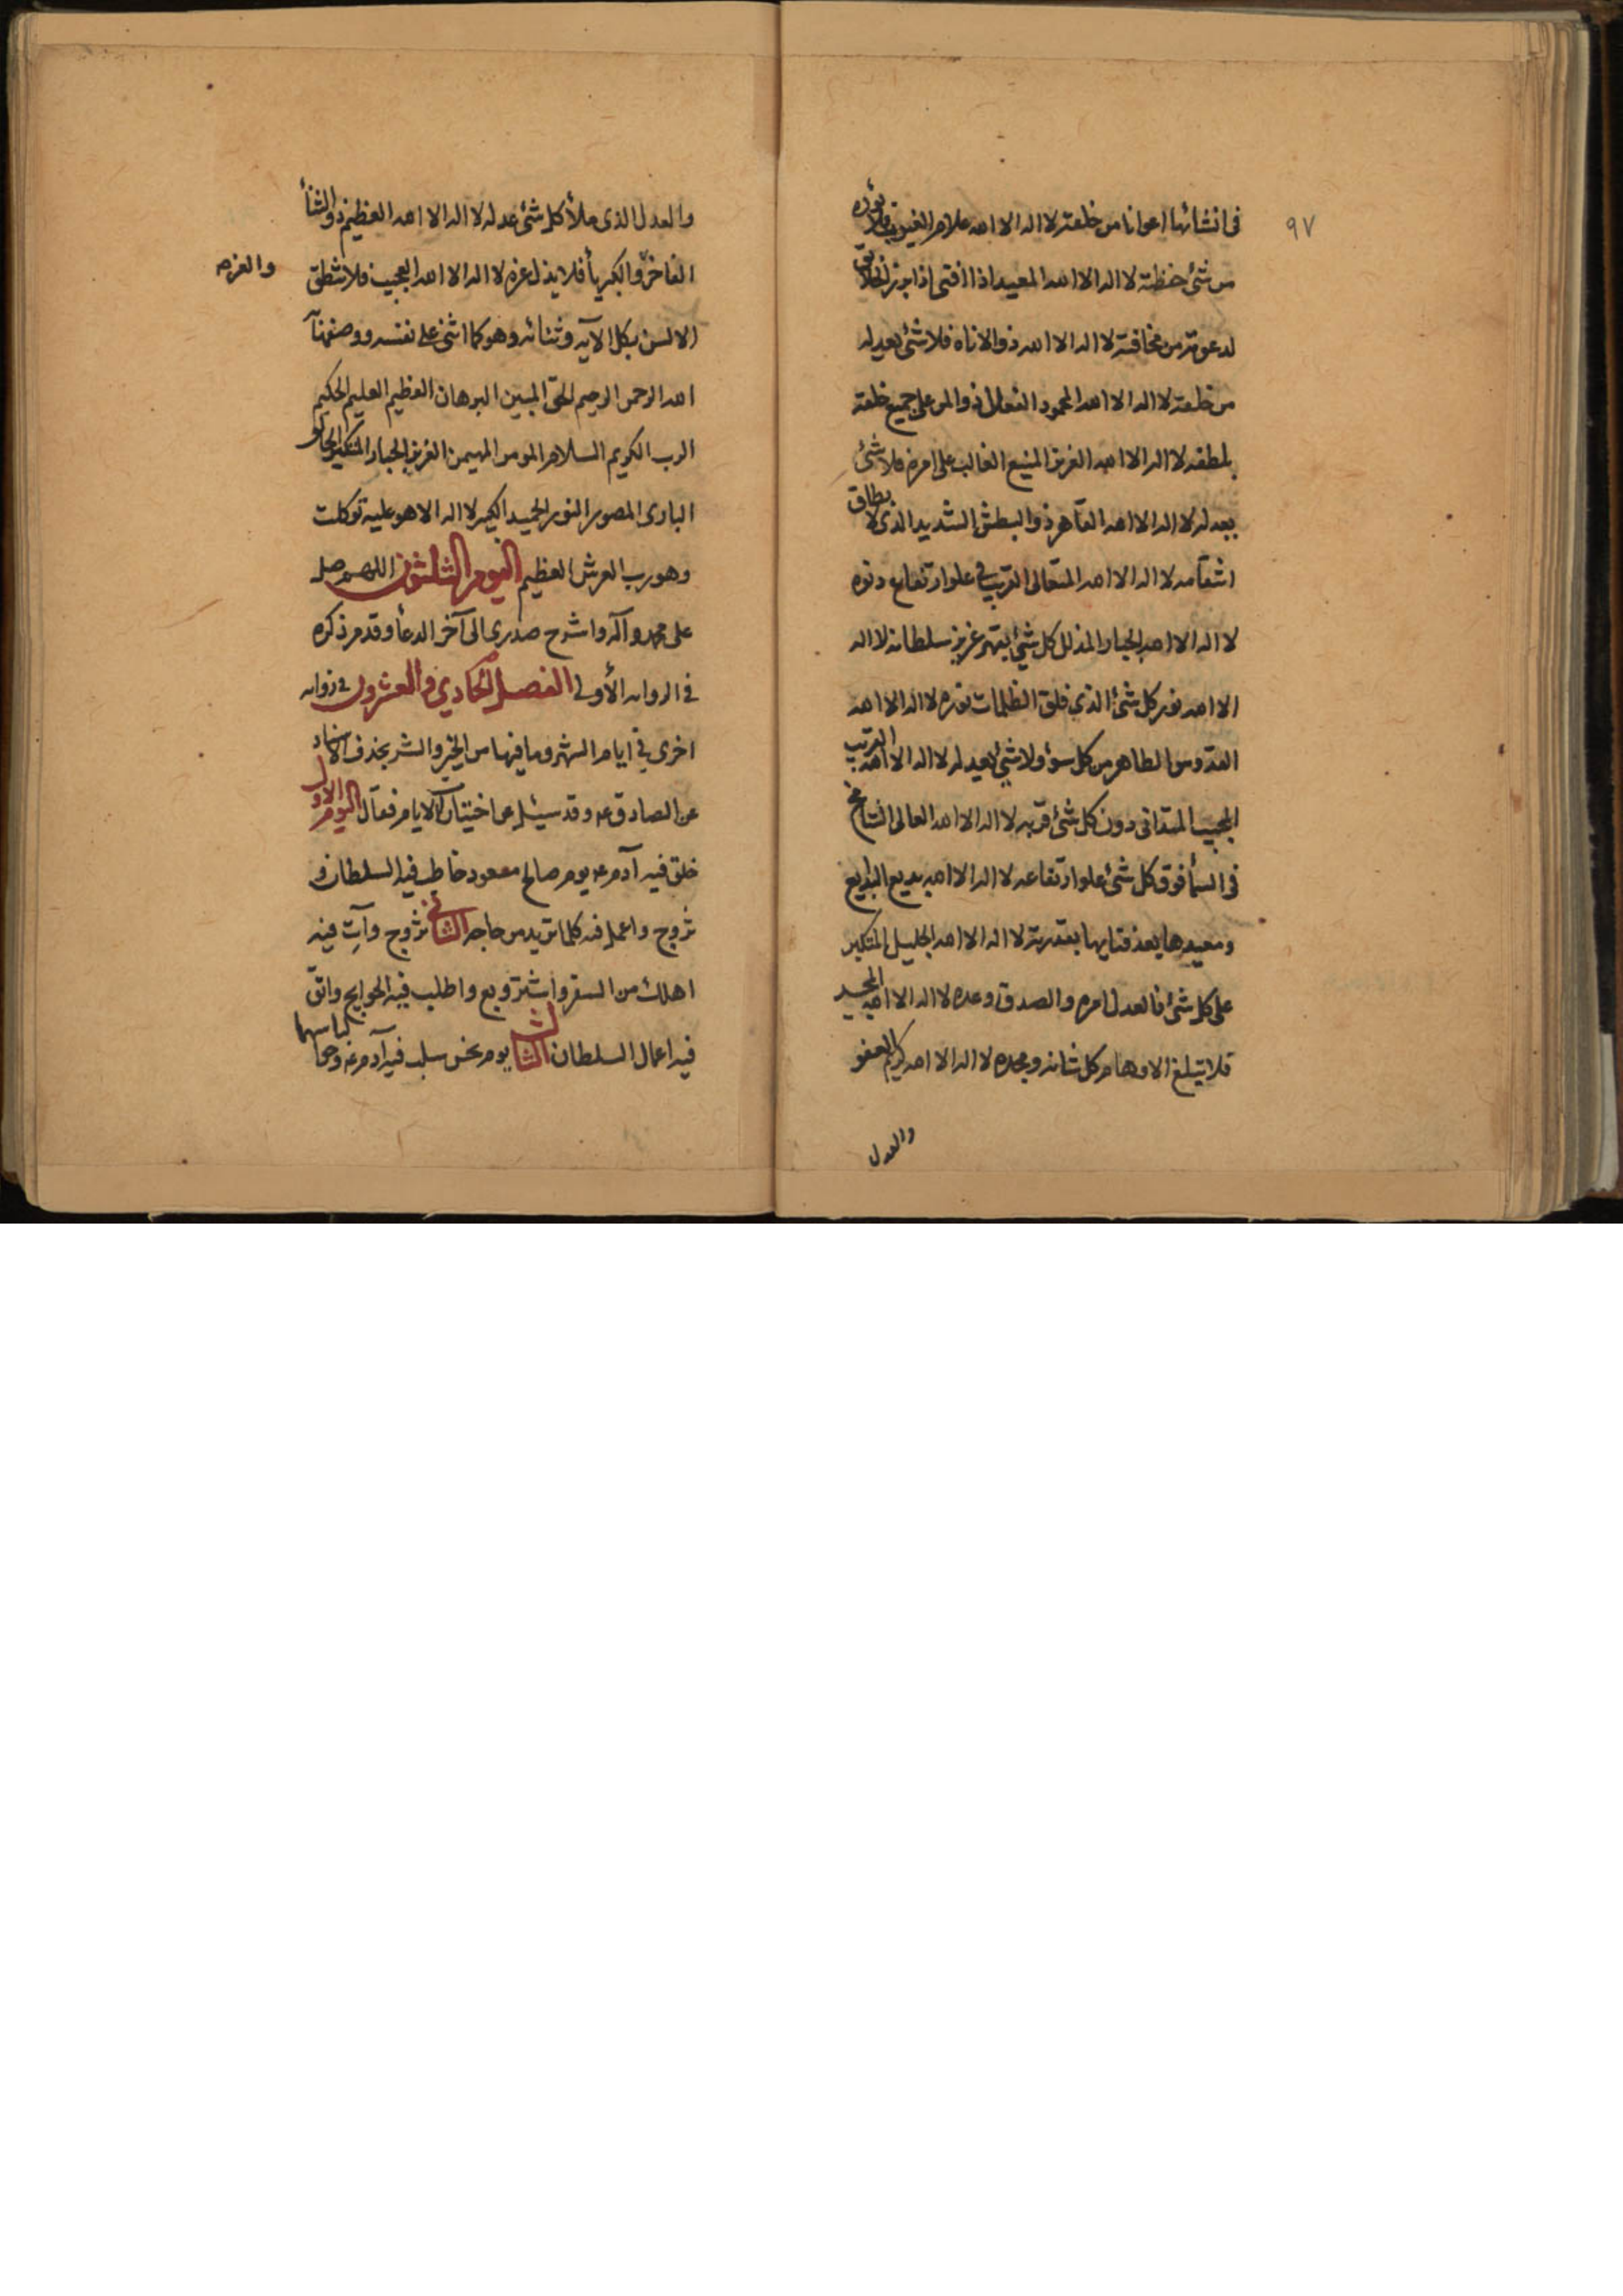 ٩٧
فى انشائها اعوانا من خلقه لا اله الا الله علام الغيوب فلا يؤده
من شئ حفظه لا اله الا الله المعيد اذا افنى اذا برز الخلائق
لدعوته من مخافته لا اله الا الله ذو الاناه فلا شئ يعدله
من خلقه لا اله الا الله المحمود الفعال ذو المن على جميع خلقه
بلطفه لا اله الا الله العزيز المنيع الغالب على امره فلا شئ
يعدله لا اله الا الله القاهر ذو البطش الشديد الذى لا يطاق
انتقامه لا اله الا الله المتعالى القريب فى علو ارتفاع دنوه
لا اله الا الله الجبار المذلل كل شئ بقهر عزيز سلطانه لا اله
الا الله نور كل شئ الذي فلق الظلمات نوره لا اله الا الله
القدوس الطاهر من كل سوء ولا شئ يعدله لا اله الا الله القريب
المجيب المتدانى دون كل شئ قربه لا اله الا الله العالى الشامخ
فى السمأ فوق كل شئ علو ارتفاعه لا اله الا الله بديع البدايع
ومعيدها بعد فنايها بقدرته لا اله الا الله الجليل المتكبر
على كل شئ فالعدل امره والصدق وعده لا اله الا الله المجيد
فلا يبلغ الاوهام كل شانه ومجده لا اله الا الله كريم العفو
والعدل
والعدل الذى ملأ كل شئ عدله لا اله الا الله العظيم ذو الثنأ
الفاخر والكبريأ فلا يذل عزه لا اله الا الله العجيب فلا تنطق
والعزه
الالسن بكل الآيه وثنائه وهو كما اثنى على نفسه ووصفها
الله الرحمن الرحيم الحق المبين البرهان العظيم العليم الحكيم
الرب الكريم السلام المومن المهيمن العزيز الجبار المتكبر الخالق
البارى المصور النور الحميد الكبير لا اله الا هو عليه توكلت
وهو رب العرش العظيم اليوم الثلثون اللهم صل
على محمد وآله واشرح صدرى الى آخر الدعأ وقد مر ذكره
فى الروايه الأولى الفصل الحادي والعشرون فى روايه
اخرى فى ايام الشهر وما فيها من الخير والشر بحذف الاسناد
عن الصادق عم وقد سئل عن اختيارات الايام فقال اليوم الاول
خلق فيه آدم عم يوم صالح مسعود خاطب فيه السلطان و
تزوج واعمل فيه كلما تريد من حاجه الثانى تزوج وآت فيه
اهلك من السفر واشتر وبع واطلب فيه الحوايج واتق
فيه اعمال السلطان الثالث يوم نحس سلب فيه آدم عم وحوا لباسهما